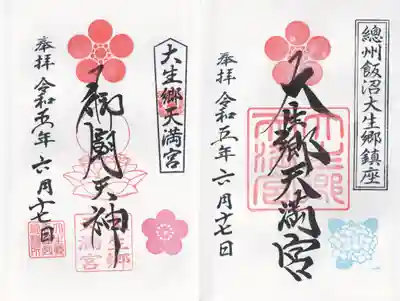 總州飯沼大生郷鎮座
大生郷天満宮
奉拝 令和五年 六月十七日
大生郷天満宮
御開天神
奉拝 令和五年 六月十七日